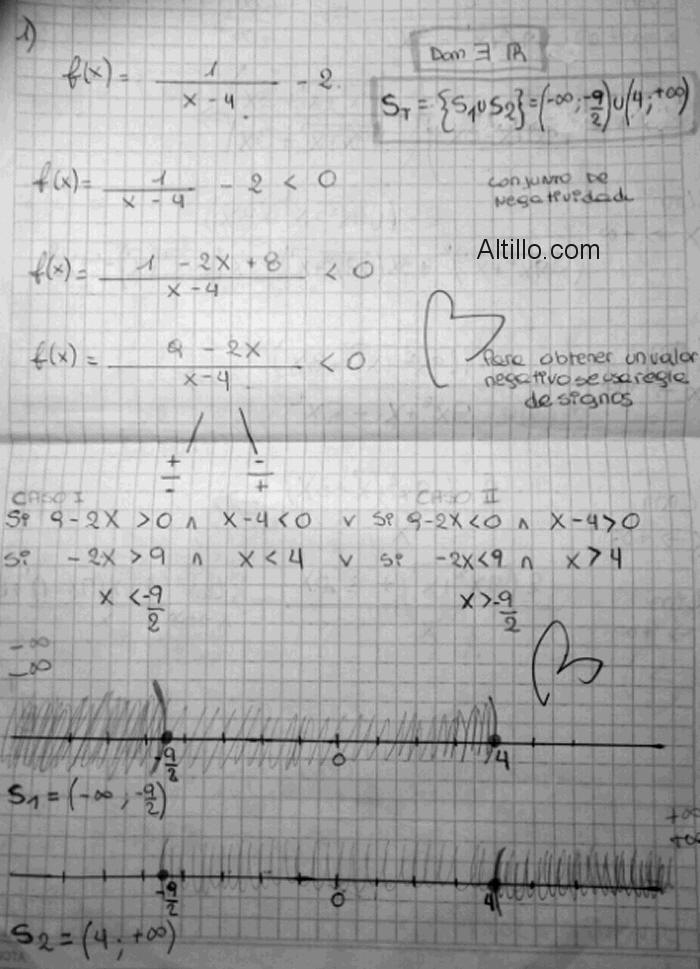 1)
Dom ∃ ℝ
f(x) = 1 / (x - 4) - 2
S_T = {S1 ∪ S2} = (-∞ ; -9/2) ∪ (4 ; +∞)
f(x) = 1 / (x - 4) - 2 < 0
conjunto de
negatividad
Altillo.com
f(x) = (1 - 2x + 8) / (x - 4) < 0
f(x) = (9 - 2x) / (x - 4) < 0
Para obtener un valor
negativo se usa regla
de signos
+/- -/+
CASO I CASO II
Si 9-2x >0 ∧ x-4<0 ∨ Si 9-2x<0 ∧ x-4>0
Si -2x > 9 ∧ x < 4 ∨ Si -2x<9 ∧ x > 4
x < -9/2 x > -9/2
-∞
-∞
-9/2 0 4
S1 = (-∞ ; -9/2)
+∞
+∞
-9/2 0 4
S2 = (4 ; +∞)